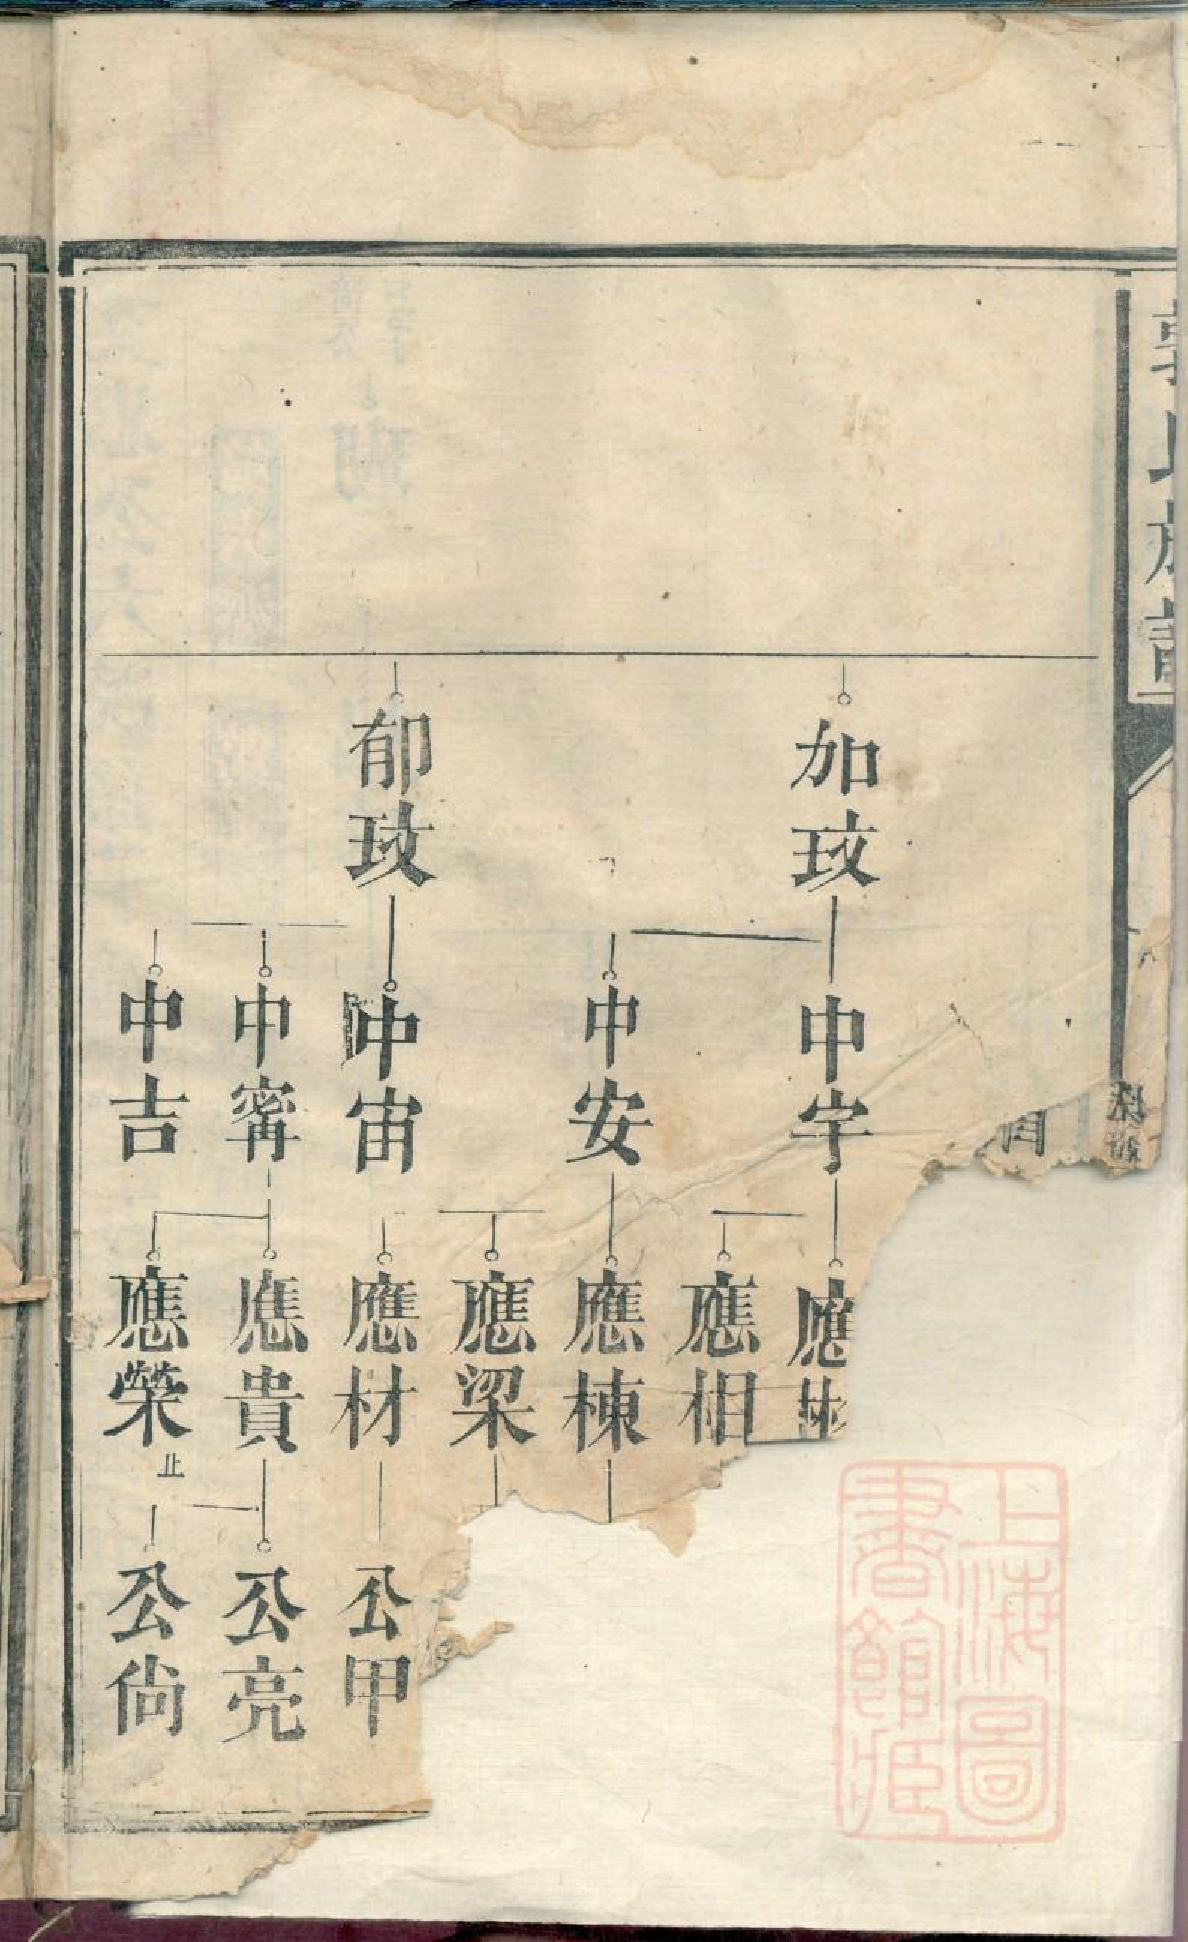 郭氏族譜
加玟
郁玟
中宇
中安
中宙
中甯
中吉
應
應相
應棟
應梁
應材
應貴
應榮止
公甲
公亮
公尙
上海圖書館藏